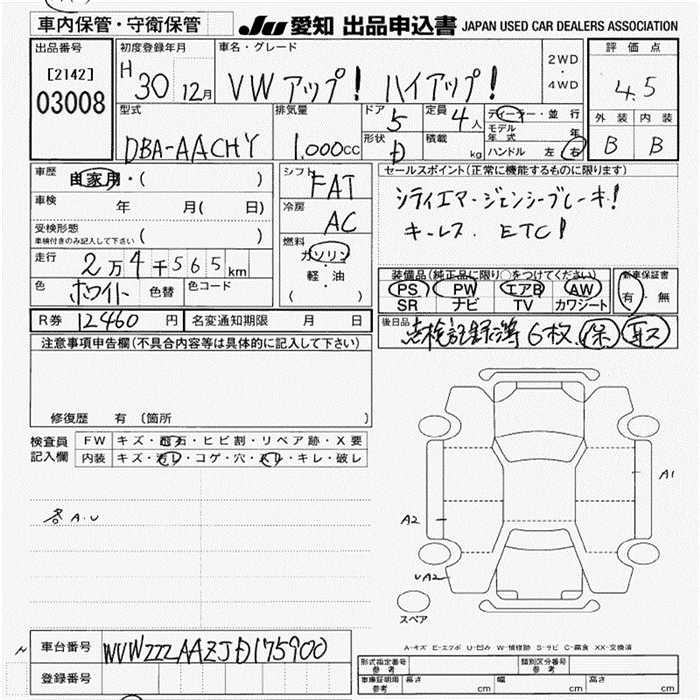 車内保管・守衛保管
JU 愛知 出品申込書 JAPAN USED CAR DEALERS ASSOCIATION
出品番号
[2142]
03008
初度登録年月
H 30 12月
車名・グレード
VW アップ! ハイアップ!
2WD
・
4WD
評価点
4.5
外装 内装
B B
型式
DBA-AACHY
排気量
1.000cc
ドア
5
定員
4人
形状
D
積載
kg
ディーラー・並行
モデル年式 年
ハンドル 左 右
車歴
自家用・( )
車検
年 月( 日)
受検形態
車検付きのみ記入して下さい ( )
走行
2万4千565km
色
ホワイト
色替
色コード
R券 12460 円
名変通知期限 月 日
シフト
FAT
冷房
AC
燃料
ガソリン
・
軽・油
( )
セールスポイント(正常に機能するものに限ります)
シティエマージェンシーブレーキ!
キーレス ETC!
装備品(純正品に限り○をつけてください)
PS PW エアB AW
SR ナビ TV カワシート
新車保証書
有・無
後日品
点検記録簿 6枚. 保 取ス
注意事項申告欄(不具合内容等は具体的に記入して下さい)
修復歴 有 (箇所
検査員
記入欄
FW キズ・飛石・ヒビ割・リペア跡・X要
内装 キズ・汚レ・コゲ・穴・スレ・キレ・破レ
各A.U
A1
A2
A2
スペア
A-キズ E-エクボ U-凹み W-補修跡 S-サビ C-腐食 XX-交換済
車台番号
WVWZZZAAZJD175900
登録番号
形式指定番号
参考
類別区分番号
参考
車庫証明用
参考
長さ cm
幅 cm
高さ cm